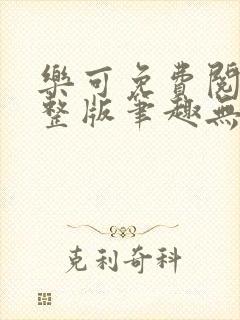 樂可免費閱
整版筆趣無
克利奇科